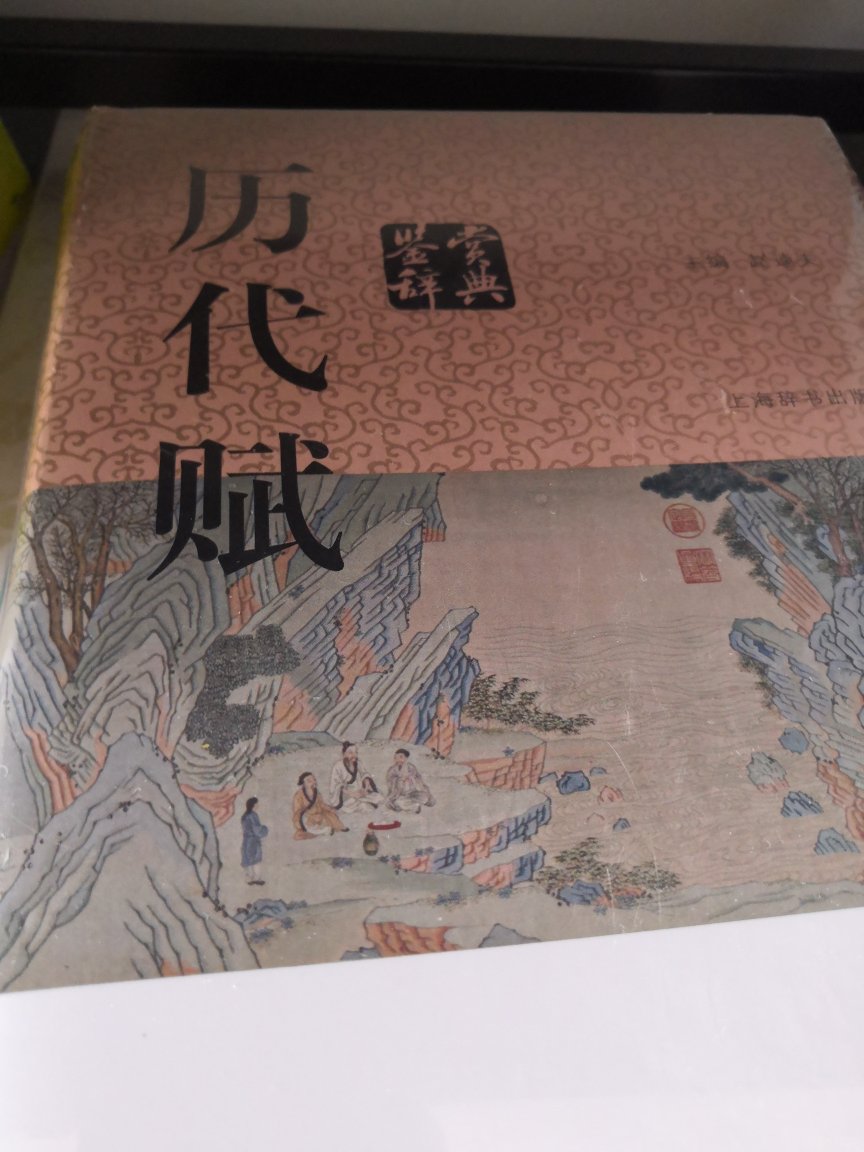 历代赋
鉴赏辞典
主编 赵逵夫
上海辞书出版